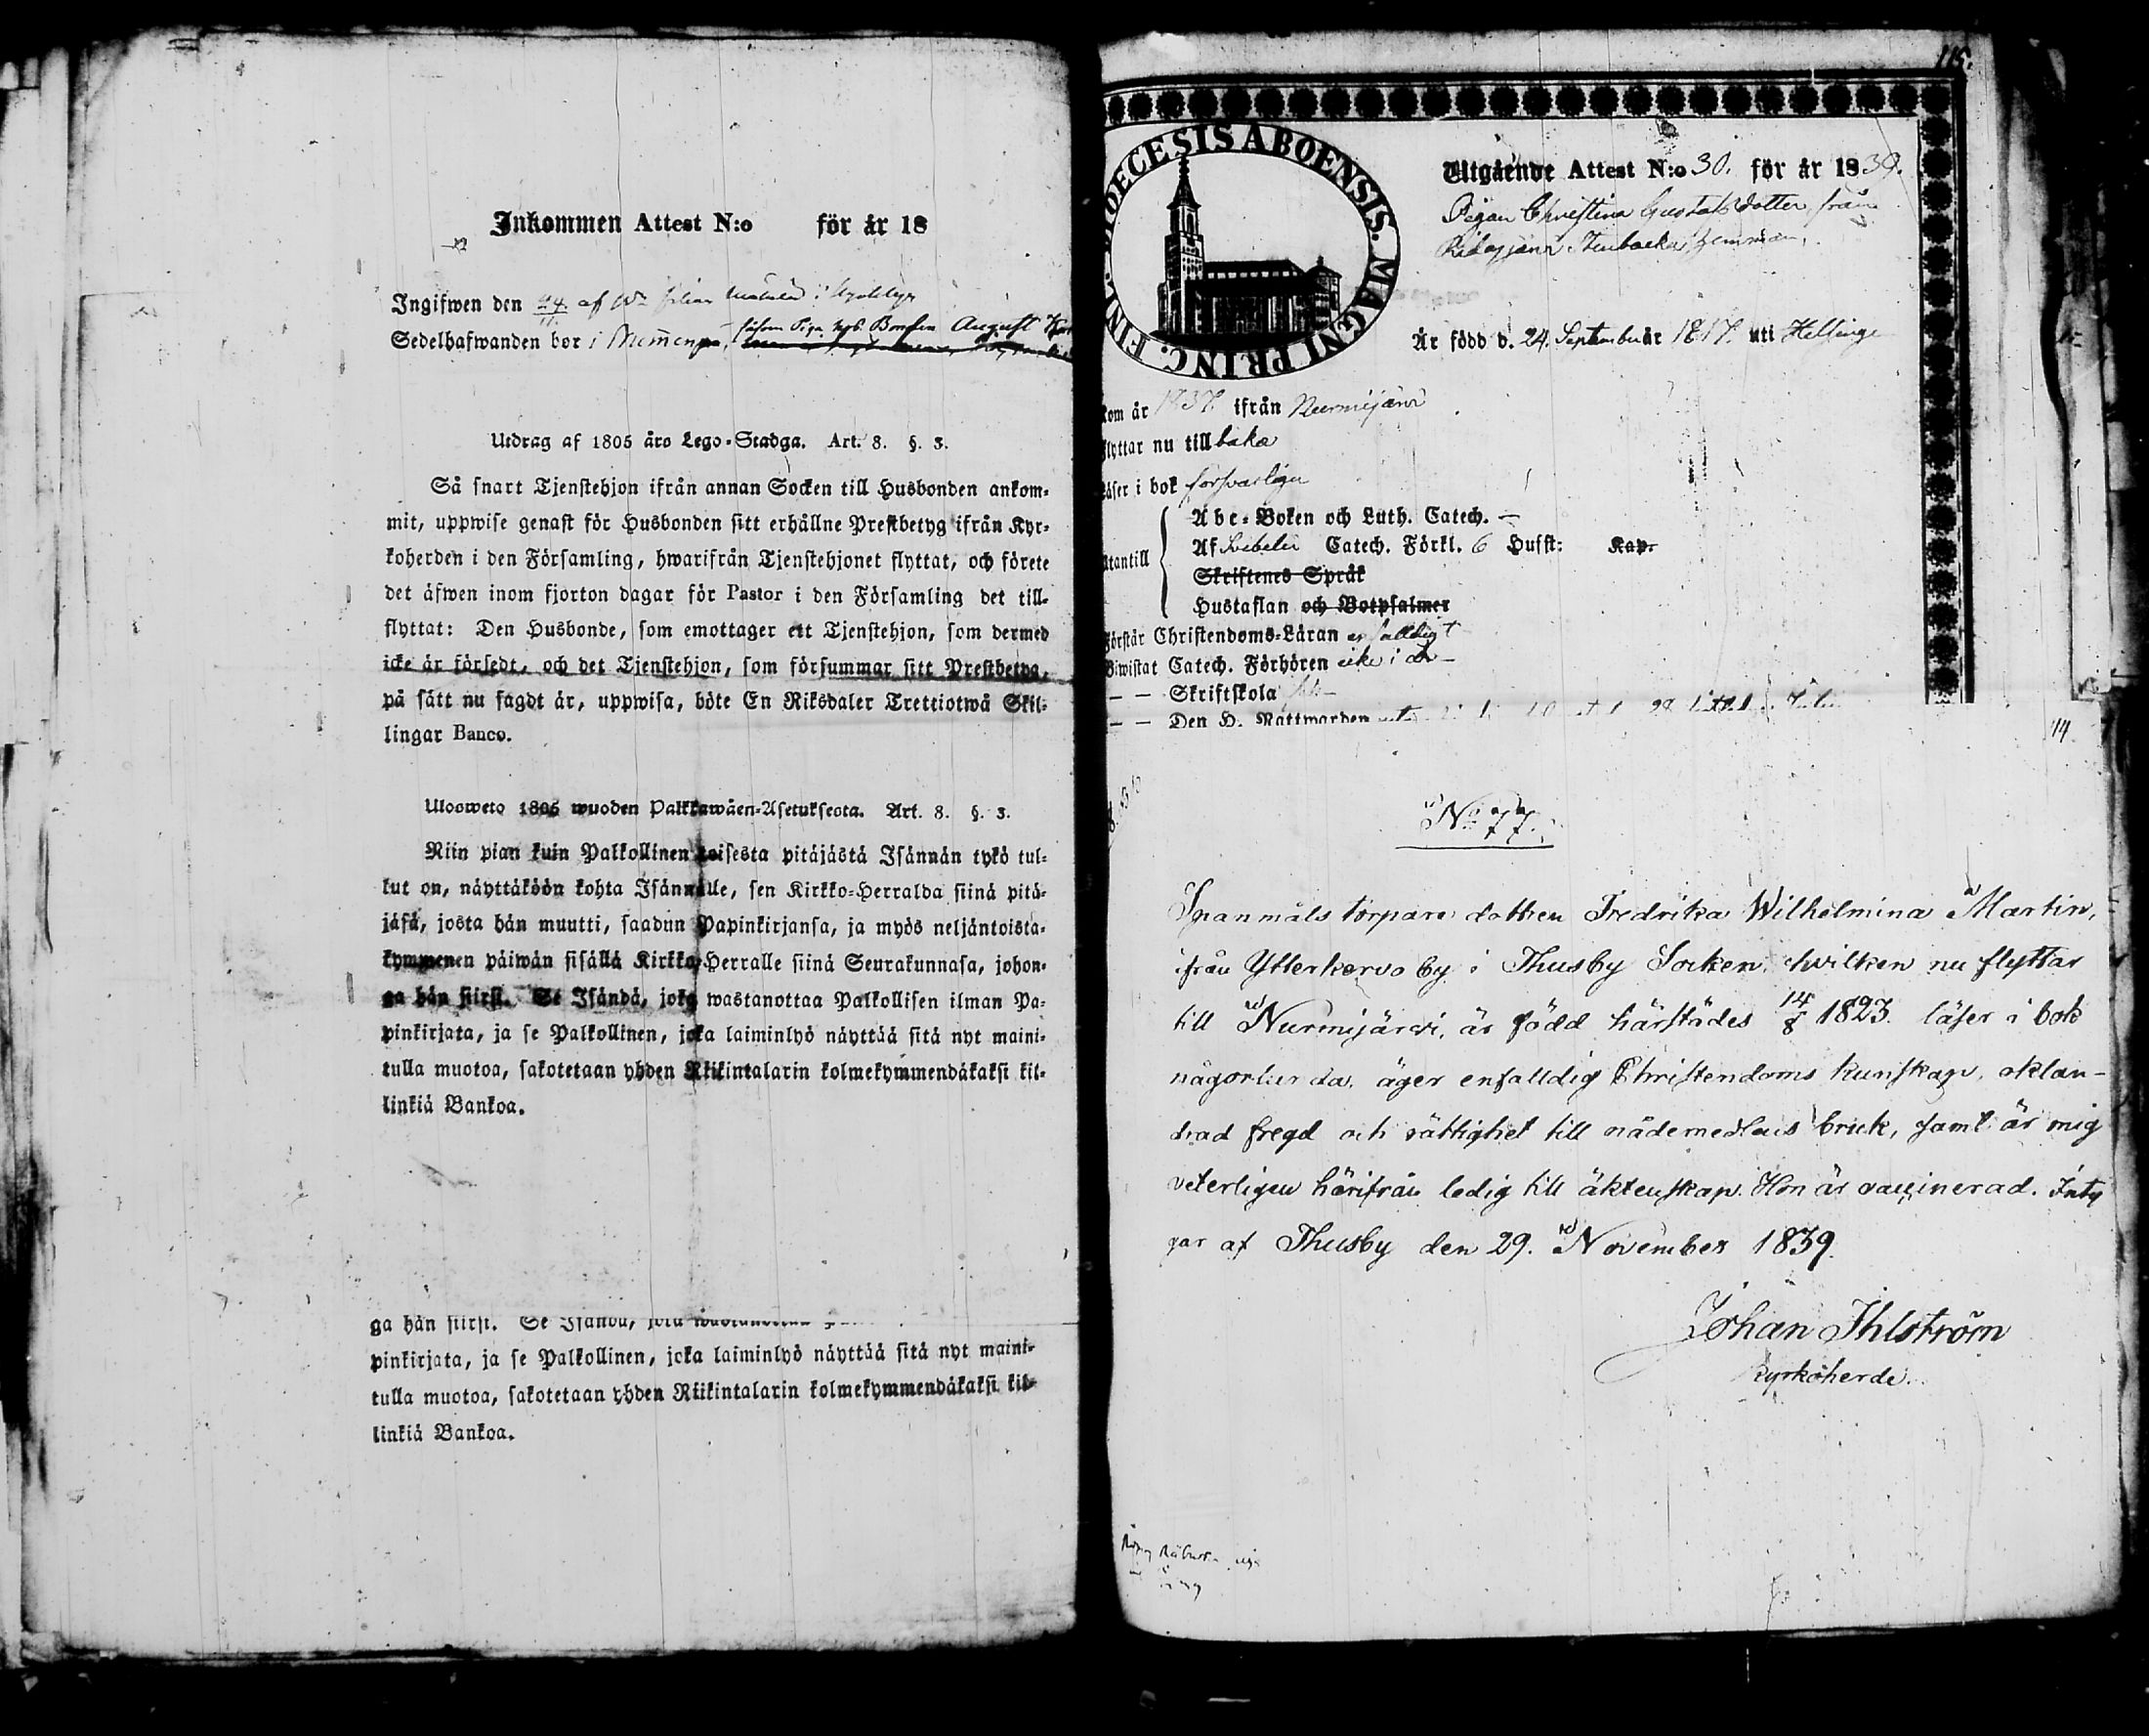 Inkommen Attest N:o för år 18
Ingifwen den 24 af
Sedelhafwanden bor i såsom Piga hos Bonden August
Utdrag af 1805 års Lego-Stadga. Art. 8. §. 3.
Så snart Tjenstehjon ifrån annan Socken till Husbonden ankom-
mit, uppwise genast för Husbonden sitt erhållne Prestbetyg ifrån Kyr-
koherden i den Församling, hwarifrån Tjenstehjonet flyttat, och förete
det äfwen inom fjorton dagar för Pastor i den Församling det till-
flyttat: Den Husbonde, som emottager ett Tjenstehjon, som dermed
icke är försedt, och det Tjenstehjon, som försummar sitt Prestbetyg,
på sätt nu sagdt är, uppwisa, böte En Riksdaler Trettiotwå Skil-
lingar Banco.
Ulosweto 1805 wuoden Palkkawäen-Asetuksesta. Art. 8. §. 3.
Niin pian kuin Palkollinen toisesta pitäjästä Isännän tykö tul-
lut on, näyttäköön kohta Isännälle, sen Kirkko-Herralda siinä pitä-
jäsä, josta hän muutti, saadun Papinkirjansa, ja myös neljäntoista-
kymmenen päiwän sisällä Kirkko-Herralle siinä Seurakunnasa, johon-
ga hän siirst. Se Isändä, joka wastanottaa Palkollisen ilman Pa-
pinkirjata, ja se Palkollinen, joka laiminlyö näyttää sitä nyt maini-
tulla muotoa, sakotetaan yhden Riikintalarin kolmekymmendäkaksi kil-
linkiä Bankoa.
ga hän siirst. Se Isändä, joka
pinkirjata, ja se Palkollinen, joka laiminlyö näyttää sitä nyt maini-
tulla muotoa, sakotetaan yhden Riikintalarin kolmekymmendäkaksi kil-
linkiä Bankoa.
115.
DIOECESIS ABOENSIS. MAGNI PRINC. FINL.
Utgående Attest N:o 30. för år 1839.
Pigan Christina Gustafsdotter från
Stenbacka hemman,
Är född d. 24. September år 1817. uti Helsinge
kom år 1837. ifrån Nurmijärvi
flyttar nu tillbaka
Läser i bok försvarligen
Utantill
Abc-Boken och Luth. Catech. —
Af Svebelii Catech. Förkl. 6 Hufst: Kap.
Skriftenes Språk
Hustaflan och Botpsalmer
Förstår Christendoms-Läran enfalldigt
Biwistat Catech. Förhören icke i år —
— — Skriftskola
— — Den H. Nattwarden
14
No 77.
Spanmåls torpare dottren Fredrika Wilhelmina Martin,
ifrån Ytterkervo by i Thusby Socken, hvilken nu flyttar
till Nurmijärvi, är född härstädes 14/8 1823. läser i bok
någorlunda, äger enfalldig Christendoms kunskap, oklan-
drad fregd och rättighet till nådemedlens bruk, samt är mig
veterligen härifrån ledig till äktenskap. Hon är vaccinerad. Inty
gar af Thusby den 29. November 1839.
Johan Ihlström
Kyrkoherde.